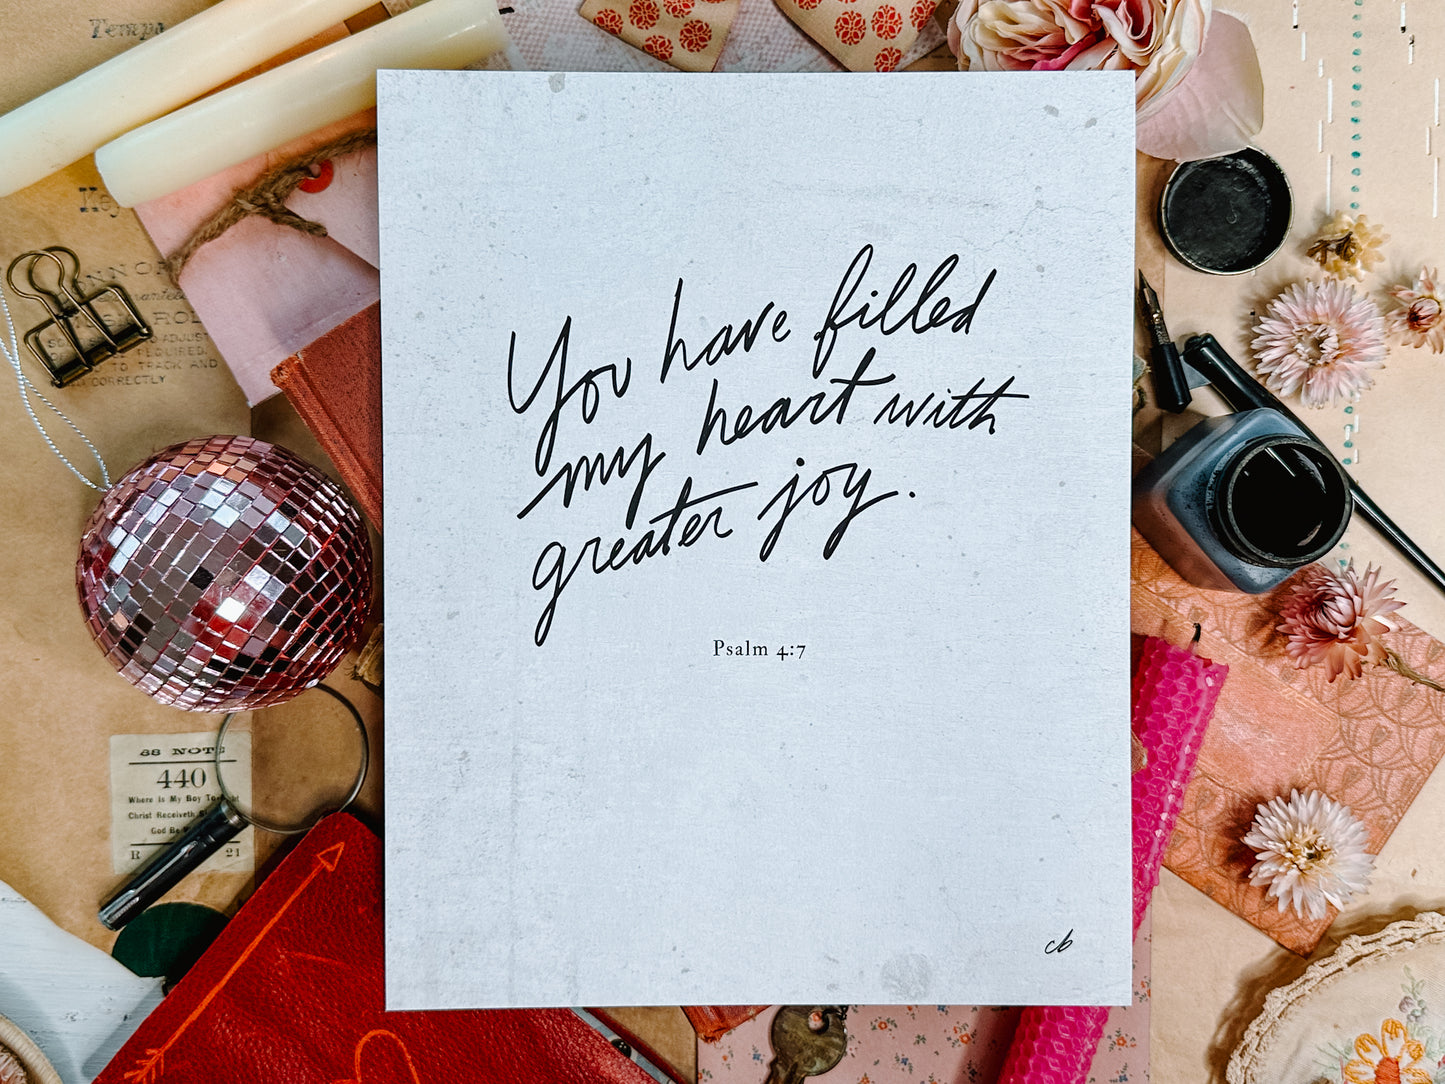 You have filled
my heart with
greater joy.
Psalm 4:7
cb
Temp
Key
NNOR
ROL
ADJUST
REQUIRED.
TO TRACK AND
CORRECTLY
88 NOTE
440
Where Is My Boy
Christ Receiveth
God Be
R 21